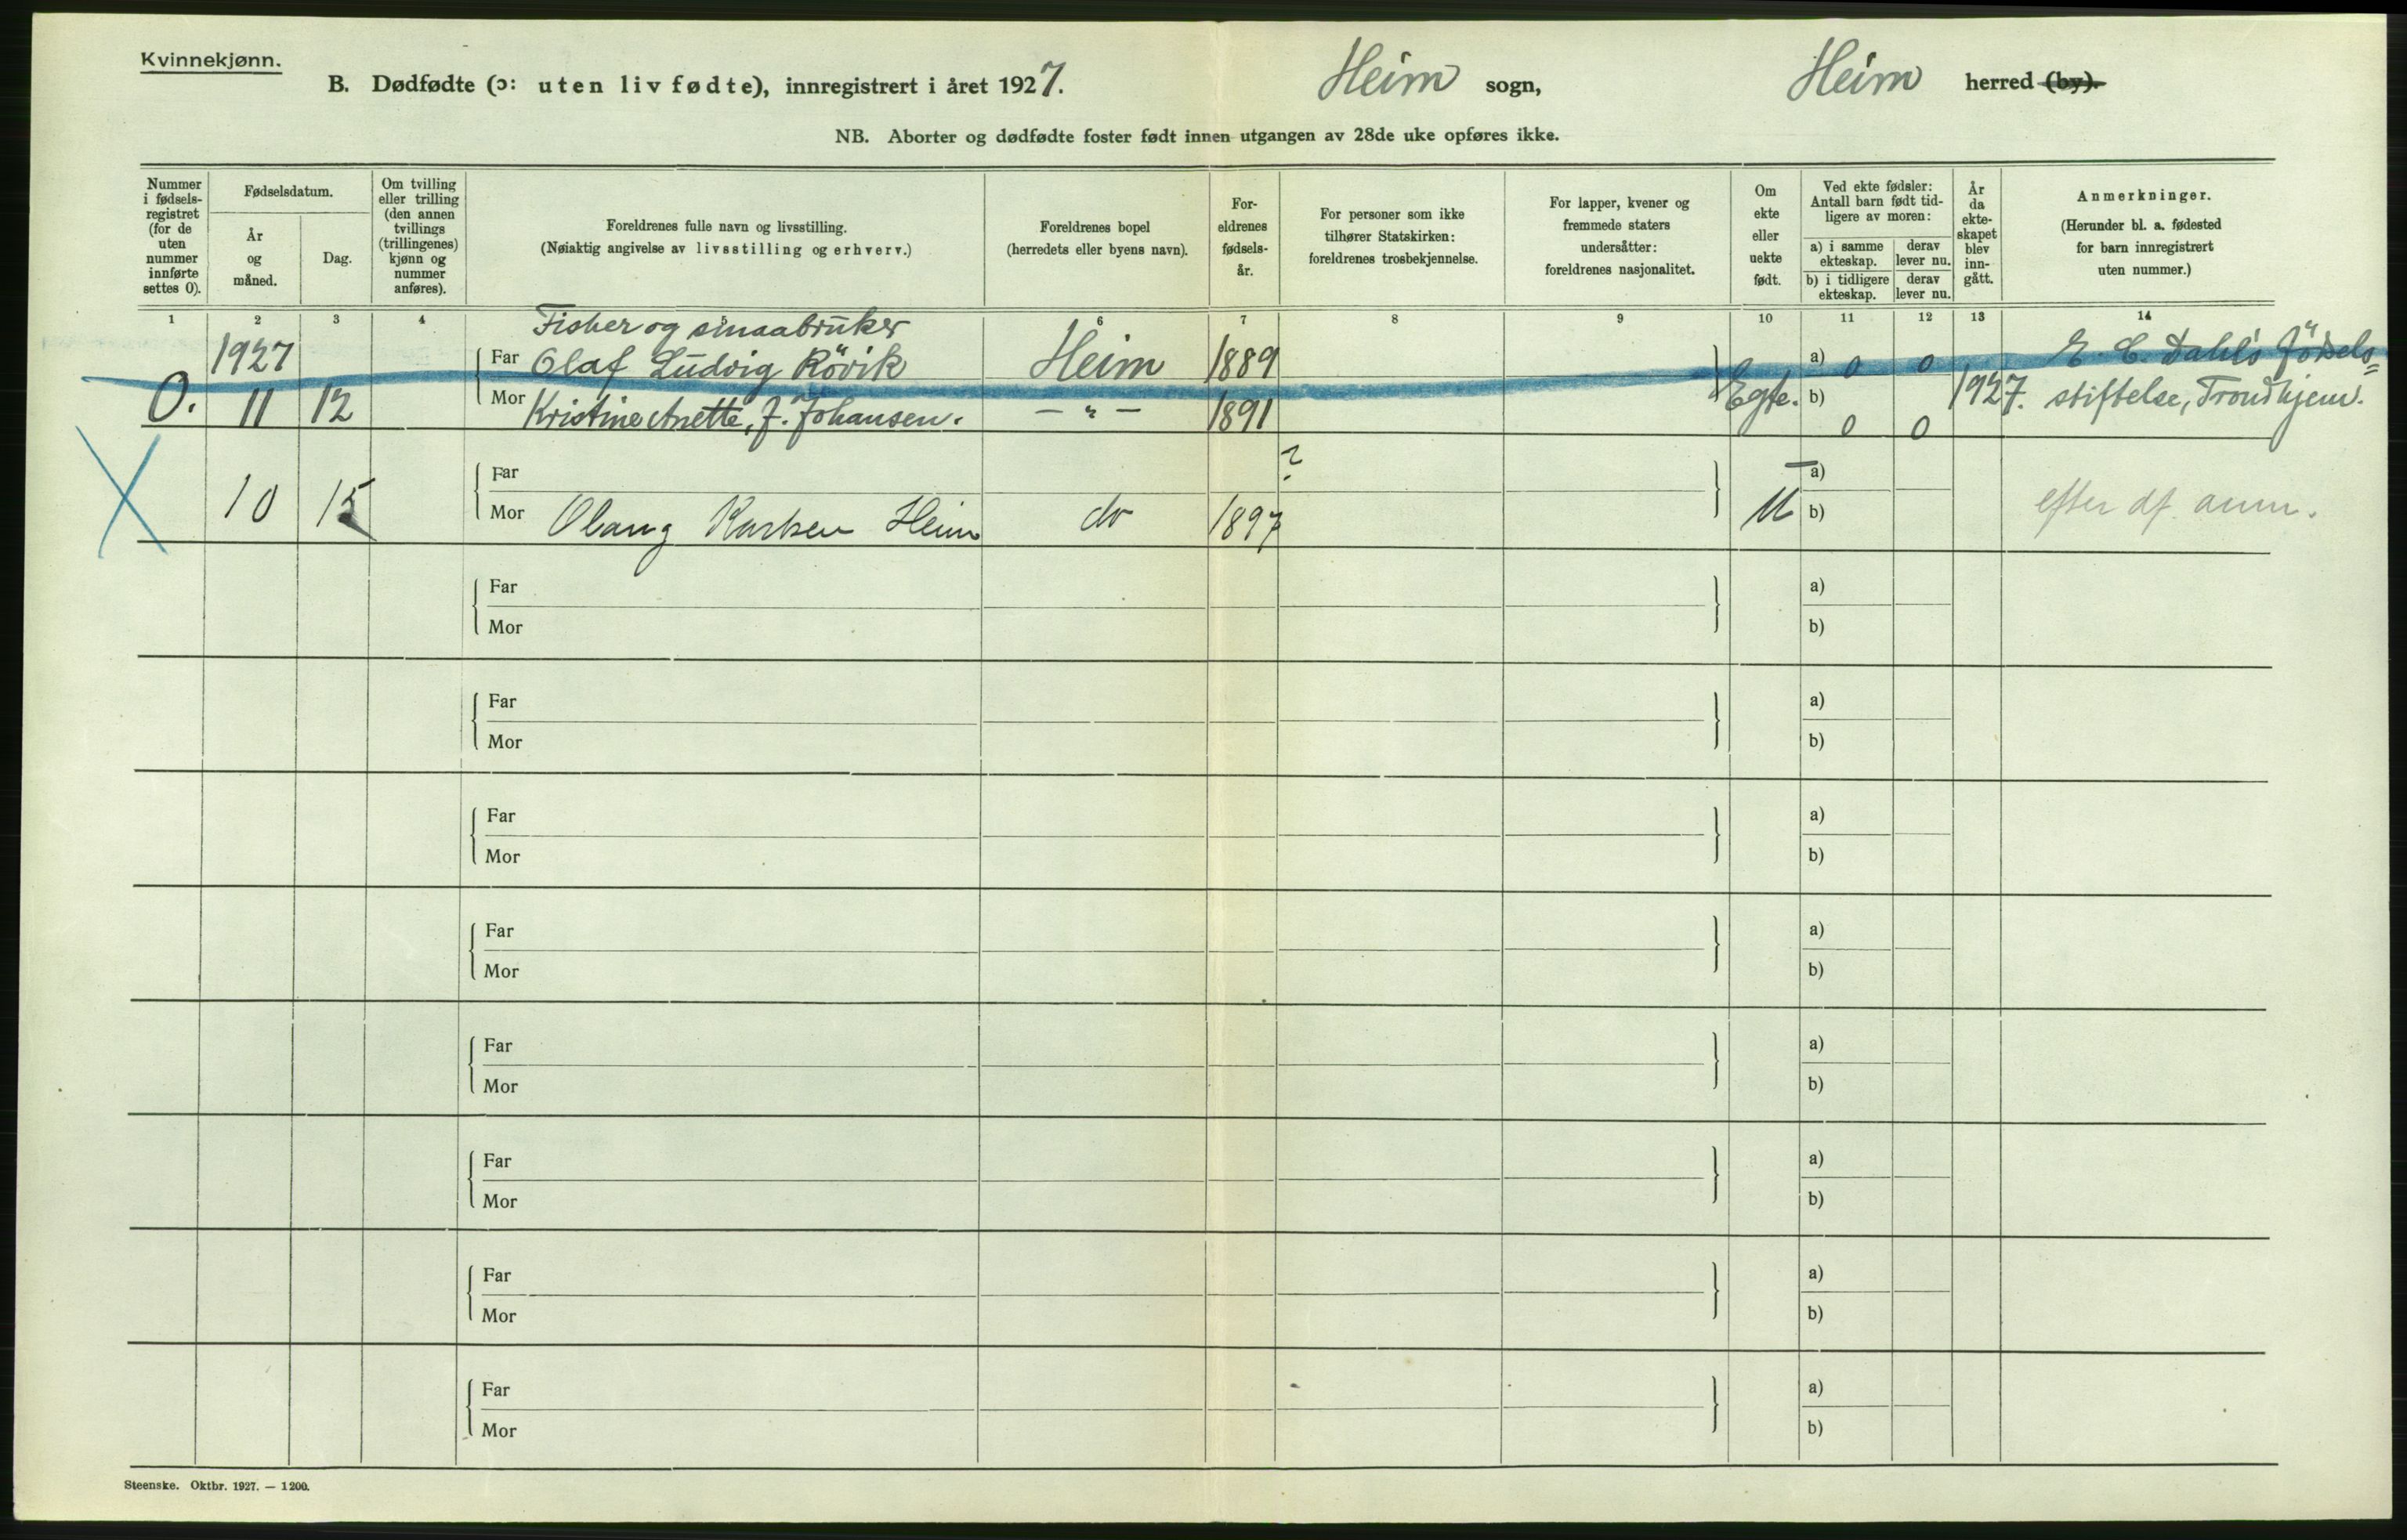 Kvinnekjønn.
B. Dødfødte (ɔ: uten liv fødte), innregistrert i året 1927. Heim sogn, Heim herred (by).
NB. Aborter og dødfødte foster født innen utgangen av 28de uke opføres ikke.
Nummer i fødsels-registret (for de uten nummer innførte settes 0).
Fødselsdatum.
År og måned.
Dag.
Om tvilling eller trilling (den annen tvillings (trillingenes) kjønn og nummer anføres).
Foreldrenes fulle navn og livsstilling.
(Nøiaktig angivelse av livsstilling og erhverv.)
Foreldrenes bopel
(herredets eller byens navn).
For-eldrenes fødsels-år.
For personer som ikke tilhører Statskirken: foreldrenes trosbekjennelse.
For lapper, kvener og fremmede staters undersåtter: foreldrenes nasjonalitet.
Om ekte eller uekte født.
Ved ekte fødsler: Antall barn født tid-ligere av moren:
a) i samme ekteskap.
derav lever nu.
b) i tidligere ekteskap.
derav lever nu.
År da ekte-skapet blev inn-gått.
Anmerkninger.
(Herunder bl. a. fødested for barn innregistrert uten nummer.)
1 2 3 4 5 6 7 8 9 10 11 12 13 14
Fisker og smaabruker
1927 Far Olaf Ludvig Rövik Heim 1889 a) 0 0 E. C. Dahl's födsels=
0. 11 12 Mor Kristine Anette, f. Johansen. — " — 1891 Egte. b) 0 0 1927. stiftelse, Trondhjem.
Far ? a)
10 15 Mor Olaug Karlsen Heim do 1897 U b) efter df. anm.
Far a)
Mor b)
Far a)
Mor b)
Far a)
Mor b)
Far a)
Mor b)
Far a)
Mor b)
Far a)
Mor b)
Far a)
Mor b)
Far a)
Mor b)
Steenske. Oktbr. 1927. — 1200.